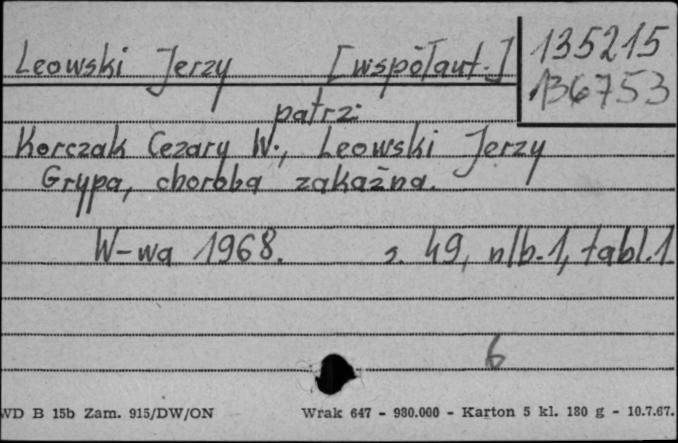 Leowski Jerzy [współaut.] 135215
136753
patrz:
Korczak Cezary W., Leowski Jerzy
Grypa, choroba zakaźna.
W-wa 1968. s. 49, nlb. 1, tabl. 1
6
WD B 15b Zam. 915/DW/ON Wrak 647 - 980.000 - Karton 5 kl. 180 g - 10.7.67.